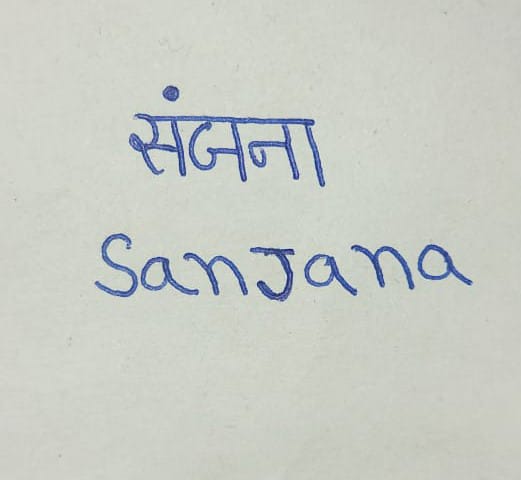 संजना
SanJana